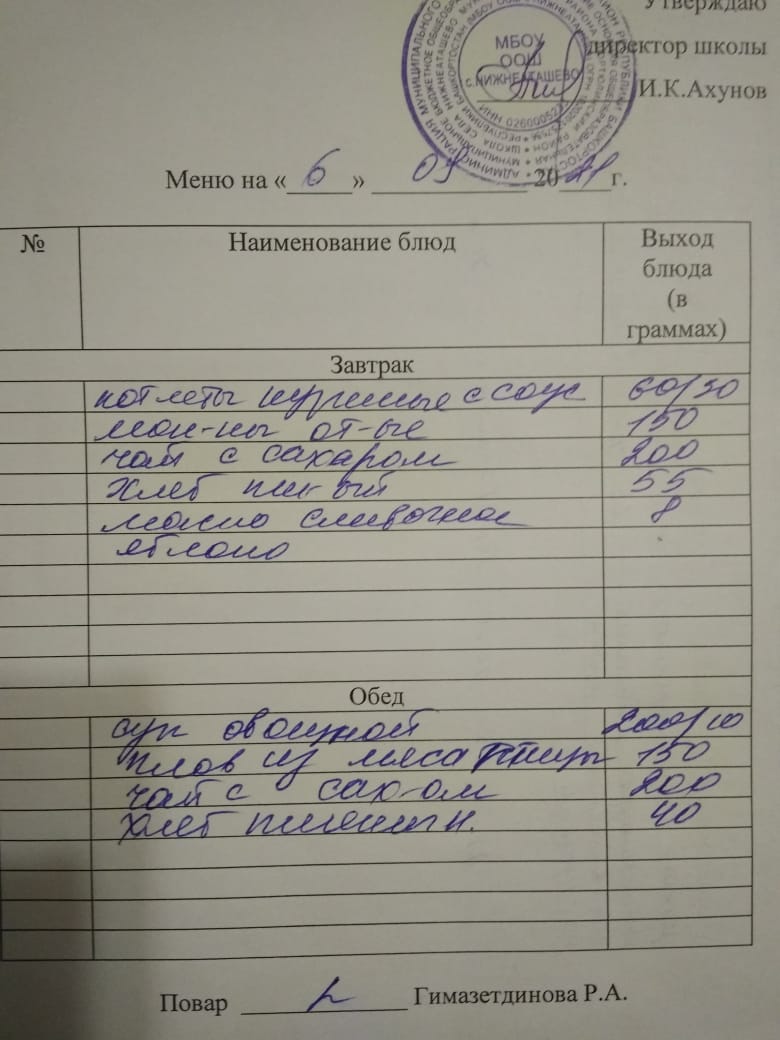 Утверждаю
директор школы
И.К.Ахунов
МБОУ
ООШ
с.НИЖНЕАТАШЕВО
Меню на « 6 » 09 2021 г.
№ Наименование блюд Выход
блюда
(в
граммах)
Завтрак
котлеты куриные с соус 60/30
мак-ны от-ые 150
чай с сахаром 200
хлеб пш-ый 55
масло сливочное 8
яблоко
Обед
суп овощной 200/10
плов из мяса птицы 150
чай с сах-ом 200
хлеб пшеничн. 40
Повар Гимазетдинова Р.А.